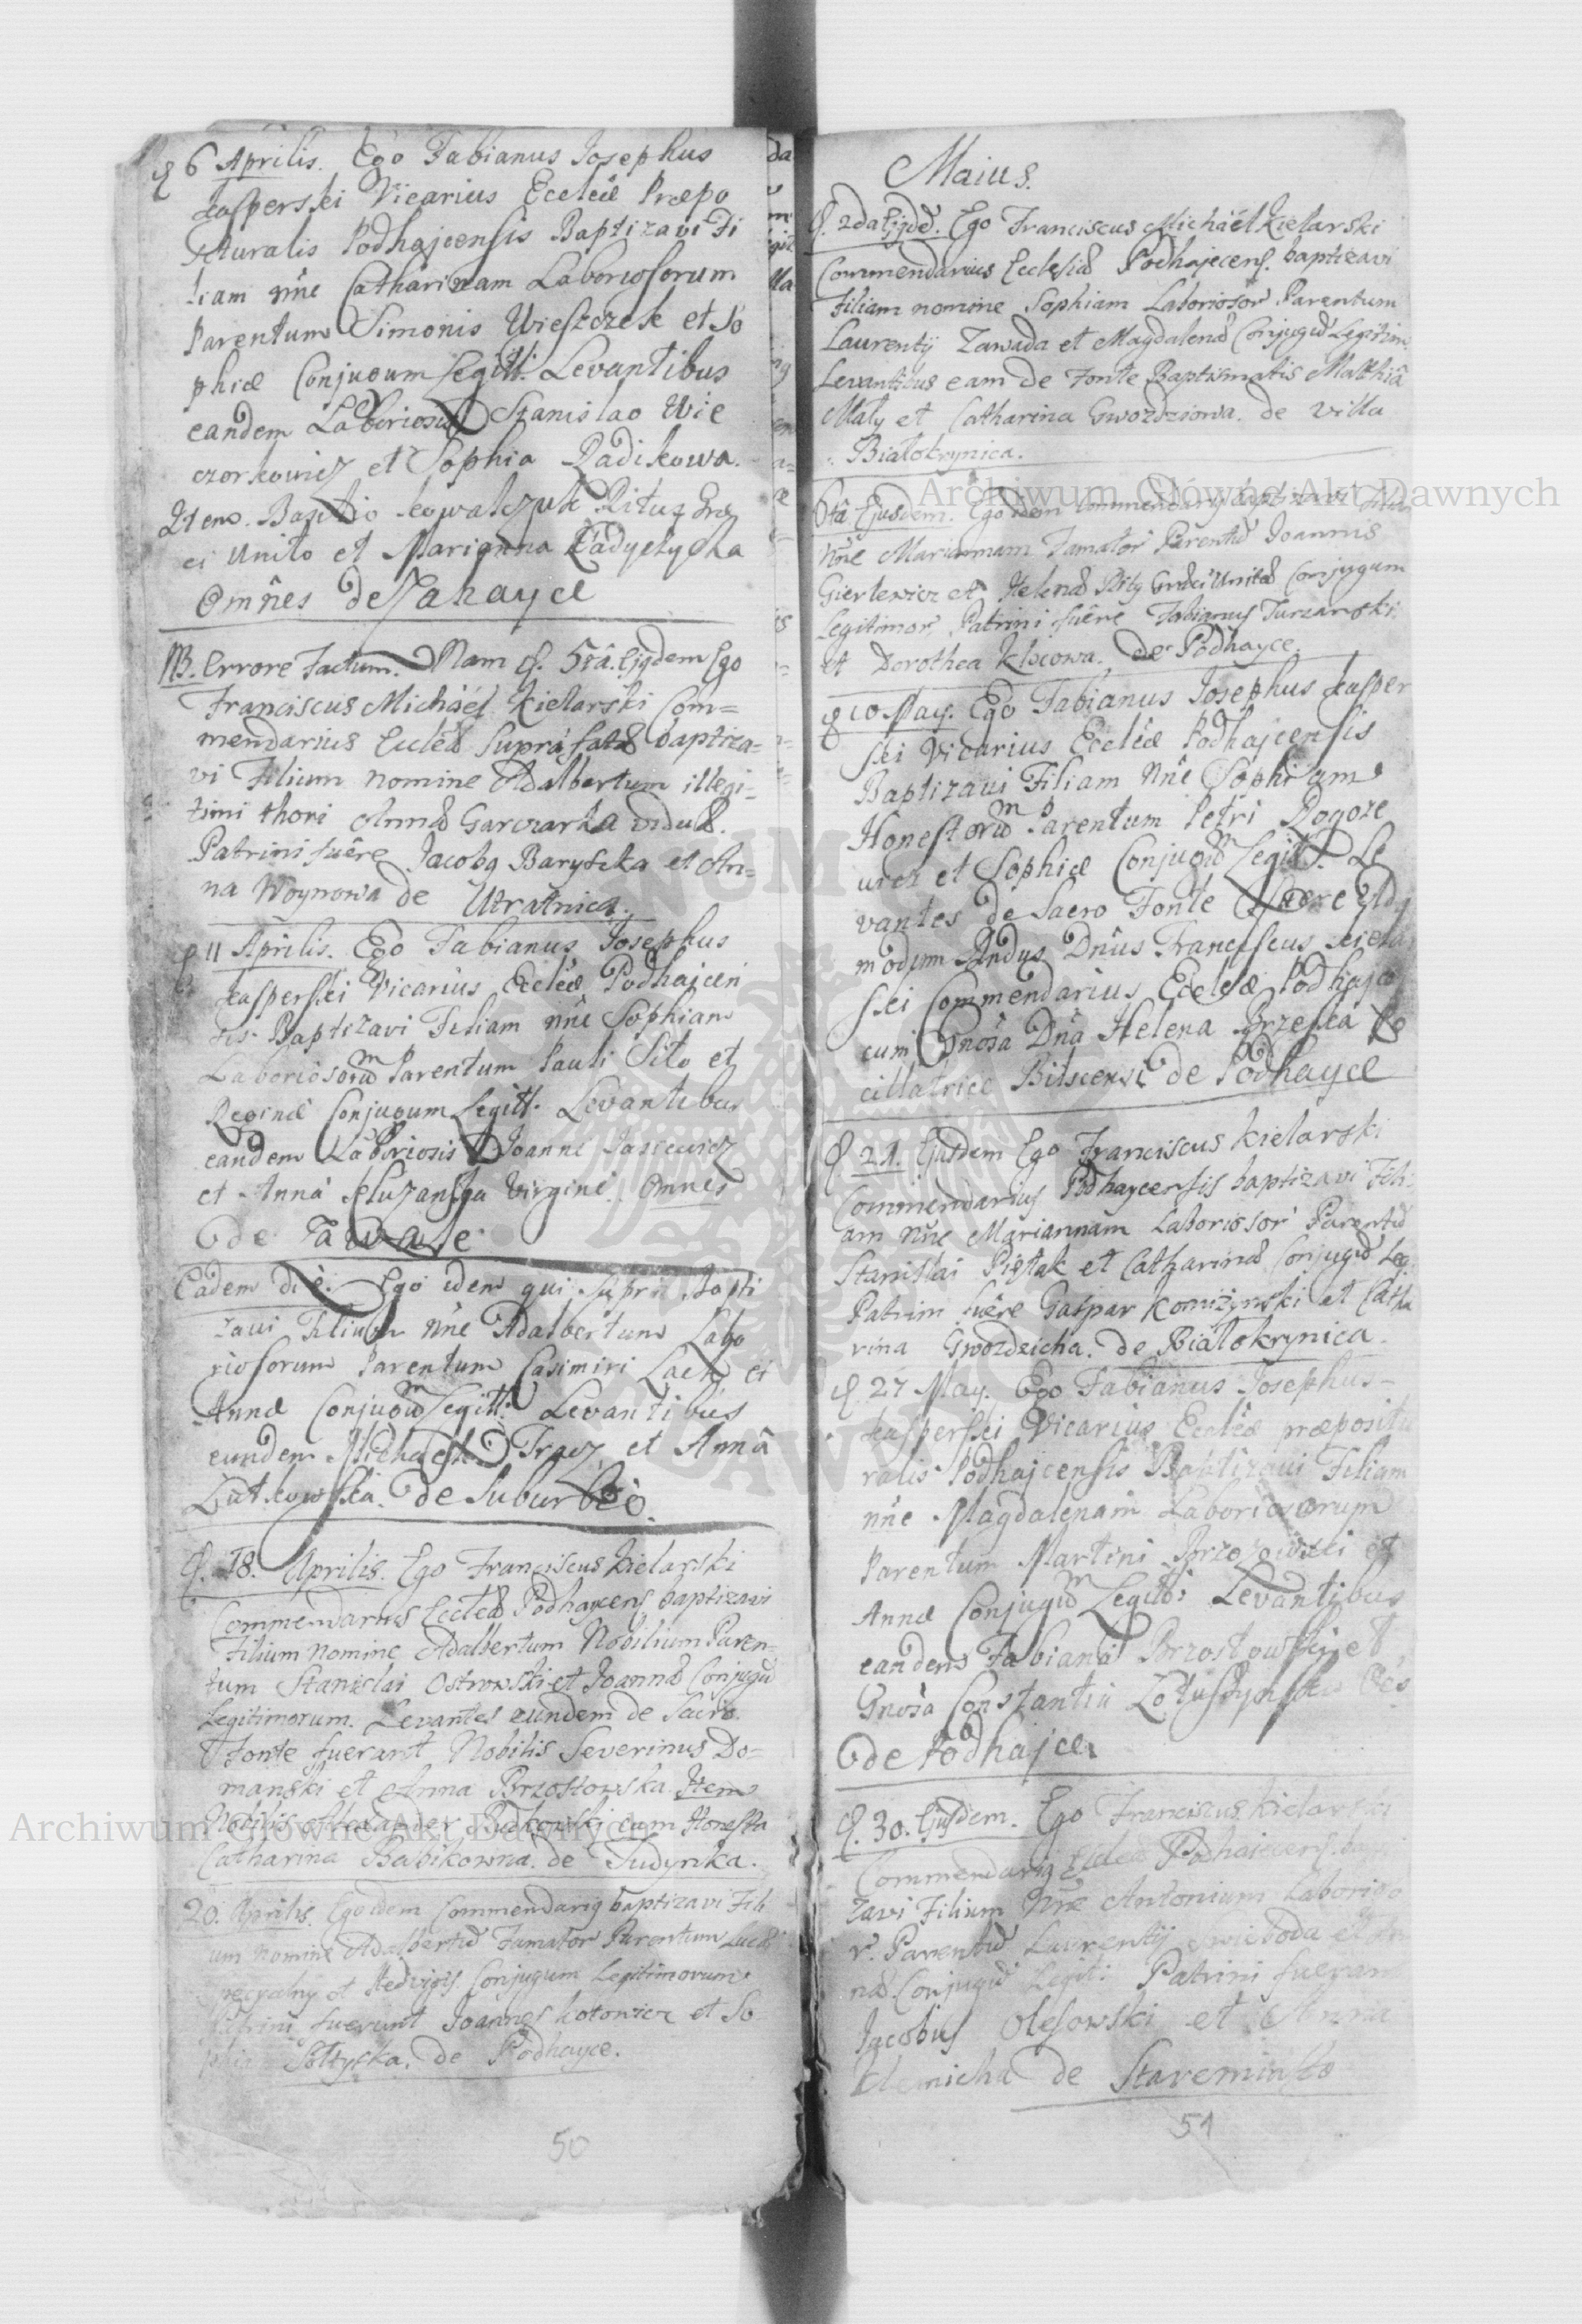 d. 6 Aprilis. Ego Fabianus Josephus
Kasperski Vicarius Eccleiæ Præpo
situralis Podhajcensis Baptizavi Fi
liam nn̂e Catharinam Laboriosorum
Parentum Simonis Wieszczek et So
phiæ Conjugum Legitt: Levantibus
eandem Laboriosis Stanislao Wie
czorkowicz et Sophia Radikowa.
Item. Basilio Kowalczuk Ritus Græ
ci Unito et Marianna Ładyczycha
Omn̂es de Zahayce
NB. Errore Factum. Nam d. 5tâ. Ejqdem Ego
Franciscus Michaël Kielarski Com=
mendarius Eccleæ Suprafatæ baptiza=
vi Filium nomine Adalbertum illegi=
timi thori Annæ Garczarka viduæ.
Patrini fuêre Jacobq Baryszka et An=
na Woynowa de Utratnica.
d. 11 Aprilis. Ego Fabianus Josephus
Kasperski Vicarius Eccleiæ Podhajcen
sis Baptizavi Filiam nn̂e Sophiam
Laboriosorum Parentum Pauli Sito et
Reginæ Conjugum Legitt. Levantibus
eandem Laboriosis Joanne Jasiewicz
et Anna Virgine. Omnes
de
Eadem diê. Ego idem qui supra Bapti
zavi Filium nn̂e Adalbertum Labo
riosorum Parentum Casimiri Lach et
Annæ Conjugum Legitt: Levantibus
eundem Michaele Tracz et Annâ
Lutkowska. de Suburbiô.
d. 18. Aprilis. Ego Franciscus Kielarski
Commendarius Eccleæ Podhaycens baptizavi
Filium nomine Adalbertum Nobilium Paren=
tum Stanislai Ostrowski et Joannæ Conjugū
Legitimorum. Levantes eundem de Sacro
Fonte fuerant Nobilis Severinus Do=
manski et Anna Brzostowska. Item
Nobilis Alexander Rutkowski cum Honesta
Catharina Babikowna. de Sudynka.
20. Aprilis. Ego idem Commendariq baptizavi Fili
um nomine Adalbertū Famator Parentum Lucæ
et Hedvigis Conjugum Legitimorum.
Patrini fuerunt Joannes Kotowicz et So
phia Sołtyska. de Podhayce.
50
Maius.
d. 2da Ejqdē. Ego Franciscus Michaël Kielarski
Commendarius Ecclesiæ Podhajecens. baptizavi
Filiam nomine Sophiam Laboriosor Parentum
Laurentij Zawada et Magdalenæ Conjugū Legitim.
Levantibus eam de Fonte Baptismatis Matthiâ
Mały et Catharina Gwozdziowa. de villa
Białokrynica.
6tâ Ejusdem. Ego idem Commendariq baptizavi Filiam
nn̂e Mariannam Famator Parentū Joannis
Gierlewicz et Helenæ Ritq Græci Unitæ Conjugum
Legitimor. Patrini fuêre Fabianus Turzanski
et Dorothea Klscowa. de Podhayce.
d. 10 May. Ego Fabianus Josephus Kasper
ski Vicarius Eccleiæ Podhajcensis
Baptizavi Filiam nn̂e Sophiam
Honestorum Parentum Petri Rogoze
wicz et Sophiæ Conjugum Legitt. Le
vantes de Sacro Fonte fuere Ad
modum Rndus Dn̂us Franciscus Kiela
ski Commendarius Eccleæ Podhajce
cum Gnosa Dn̂a Helena Brzeska
cillatrice de Podhayce
d. 21. Ejusdem Ego Franciscus Kielarski
Commendarius Podhaycensis baptizavi Fili
am nn̂e Mariannam Laboriosor Parentū
Stanislai Piętak et Catharinæ Conjugū Leg:
Patrini fuêre Gaspar Komizynski et Catha
rina Gwozdzicha. de Białokrynica.
d. 27 May. Ego Fabianus Josephus
Kasperski Vicarius Eccleæ præpositu
ralis Podhajcensis Baptizavi Filiam
nn̂e Magdalenam Laboriosorum
Parentum Martini Brzozowski et
Annæ Conjugum Legitt: Levantibus
eandem Fabiano Brzostowski et
Gnosa Constantia
de Podhajce.
d. 30. Ejusdem. Ego Franciscus Kielarski
Commendariq Eccleæ Podhaiecens. bapti
zavi Filium Nn̂e Antonium Laborioso
r. Parentū Laurentij Swieboda et An
næ Conjugū Legit: Patrini fuerant
Jacobus Olesowski et Anna
Klemicha de Staremiasto
51
Archiwum Główne Akt Dawnych
Archiwum Główne Akt Dawnych